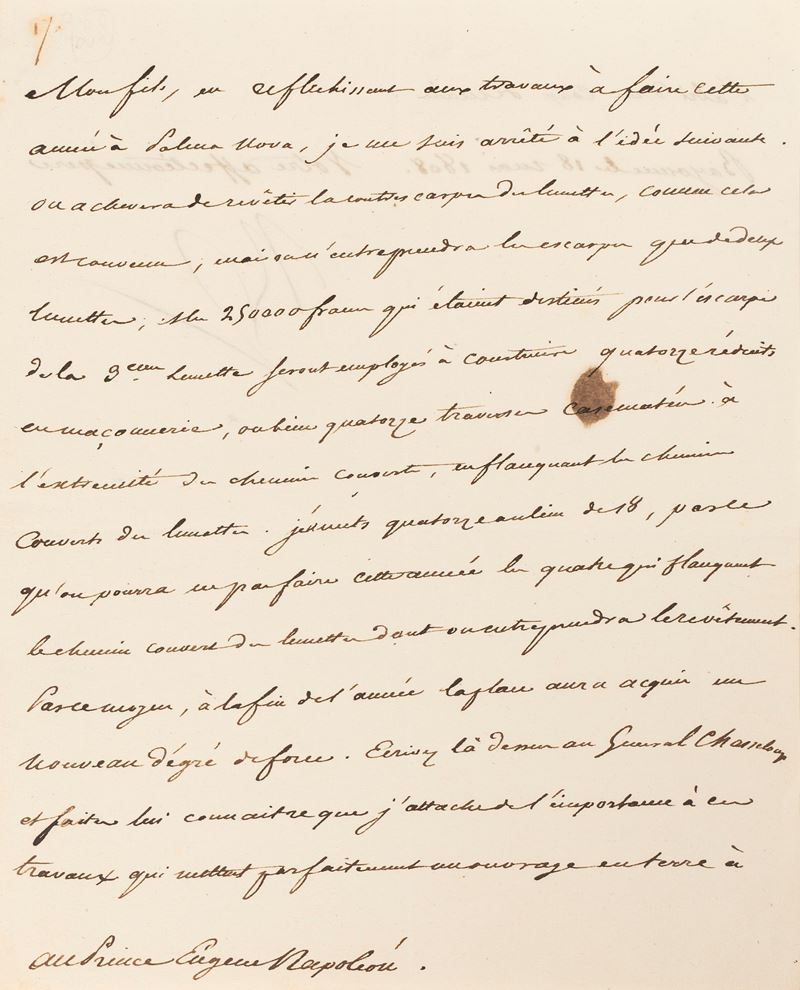 Mon fils, en reflechissant aux travaux à faire cette
année à Palma Nova, je me suis arrêté à l'idée suivante.
on achevera de revêtir la contrescarpe des lunettes, comme cela
est convenu, mais on n'entreprendra les escarpes que de deux
lunettes; les 250000 francs qui étaient destinés pour l'escarpe
de la 3eme Lunette seront employés à construire quatorze réduits
en maçonnerie, ou bien quatorze traverses casematées à
l'extremité du chemin couvert, en flanquant les chemins
couverts des lunettes. je mets quatorze au lieu de 18, parce
qu'on pourra ne pas faire cette année les quatre qui flanquent
le chemin couvert des lunettes dont on entreprendra le revêtement.
Par ce moyen, à la fin de l'année la place aura acquis un
nouveau dégré de force. Ecrivez là dessus au General Chasseloup
et faites lui connaitre que j'attache de l'importance à ces
travaux qui mettent parfaitement un ouvrage en terre à
au Prince Eugene Napoléon.
Bayonne le 18 mai 1808. Votre affectionné pere